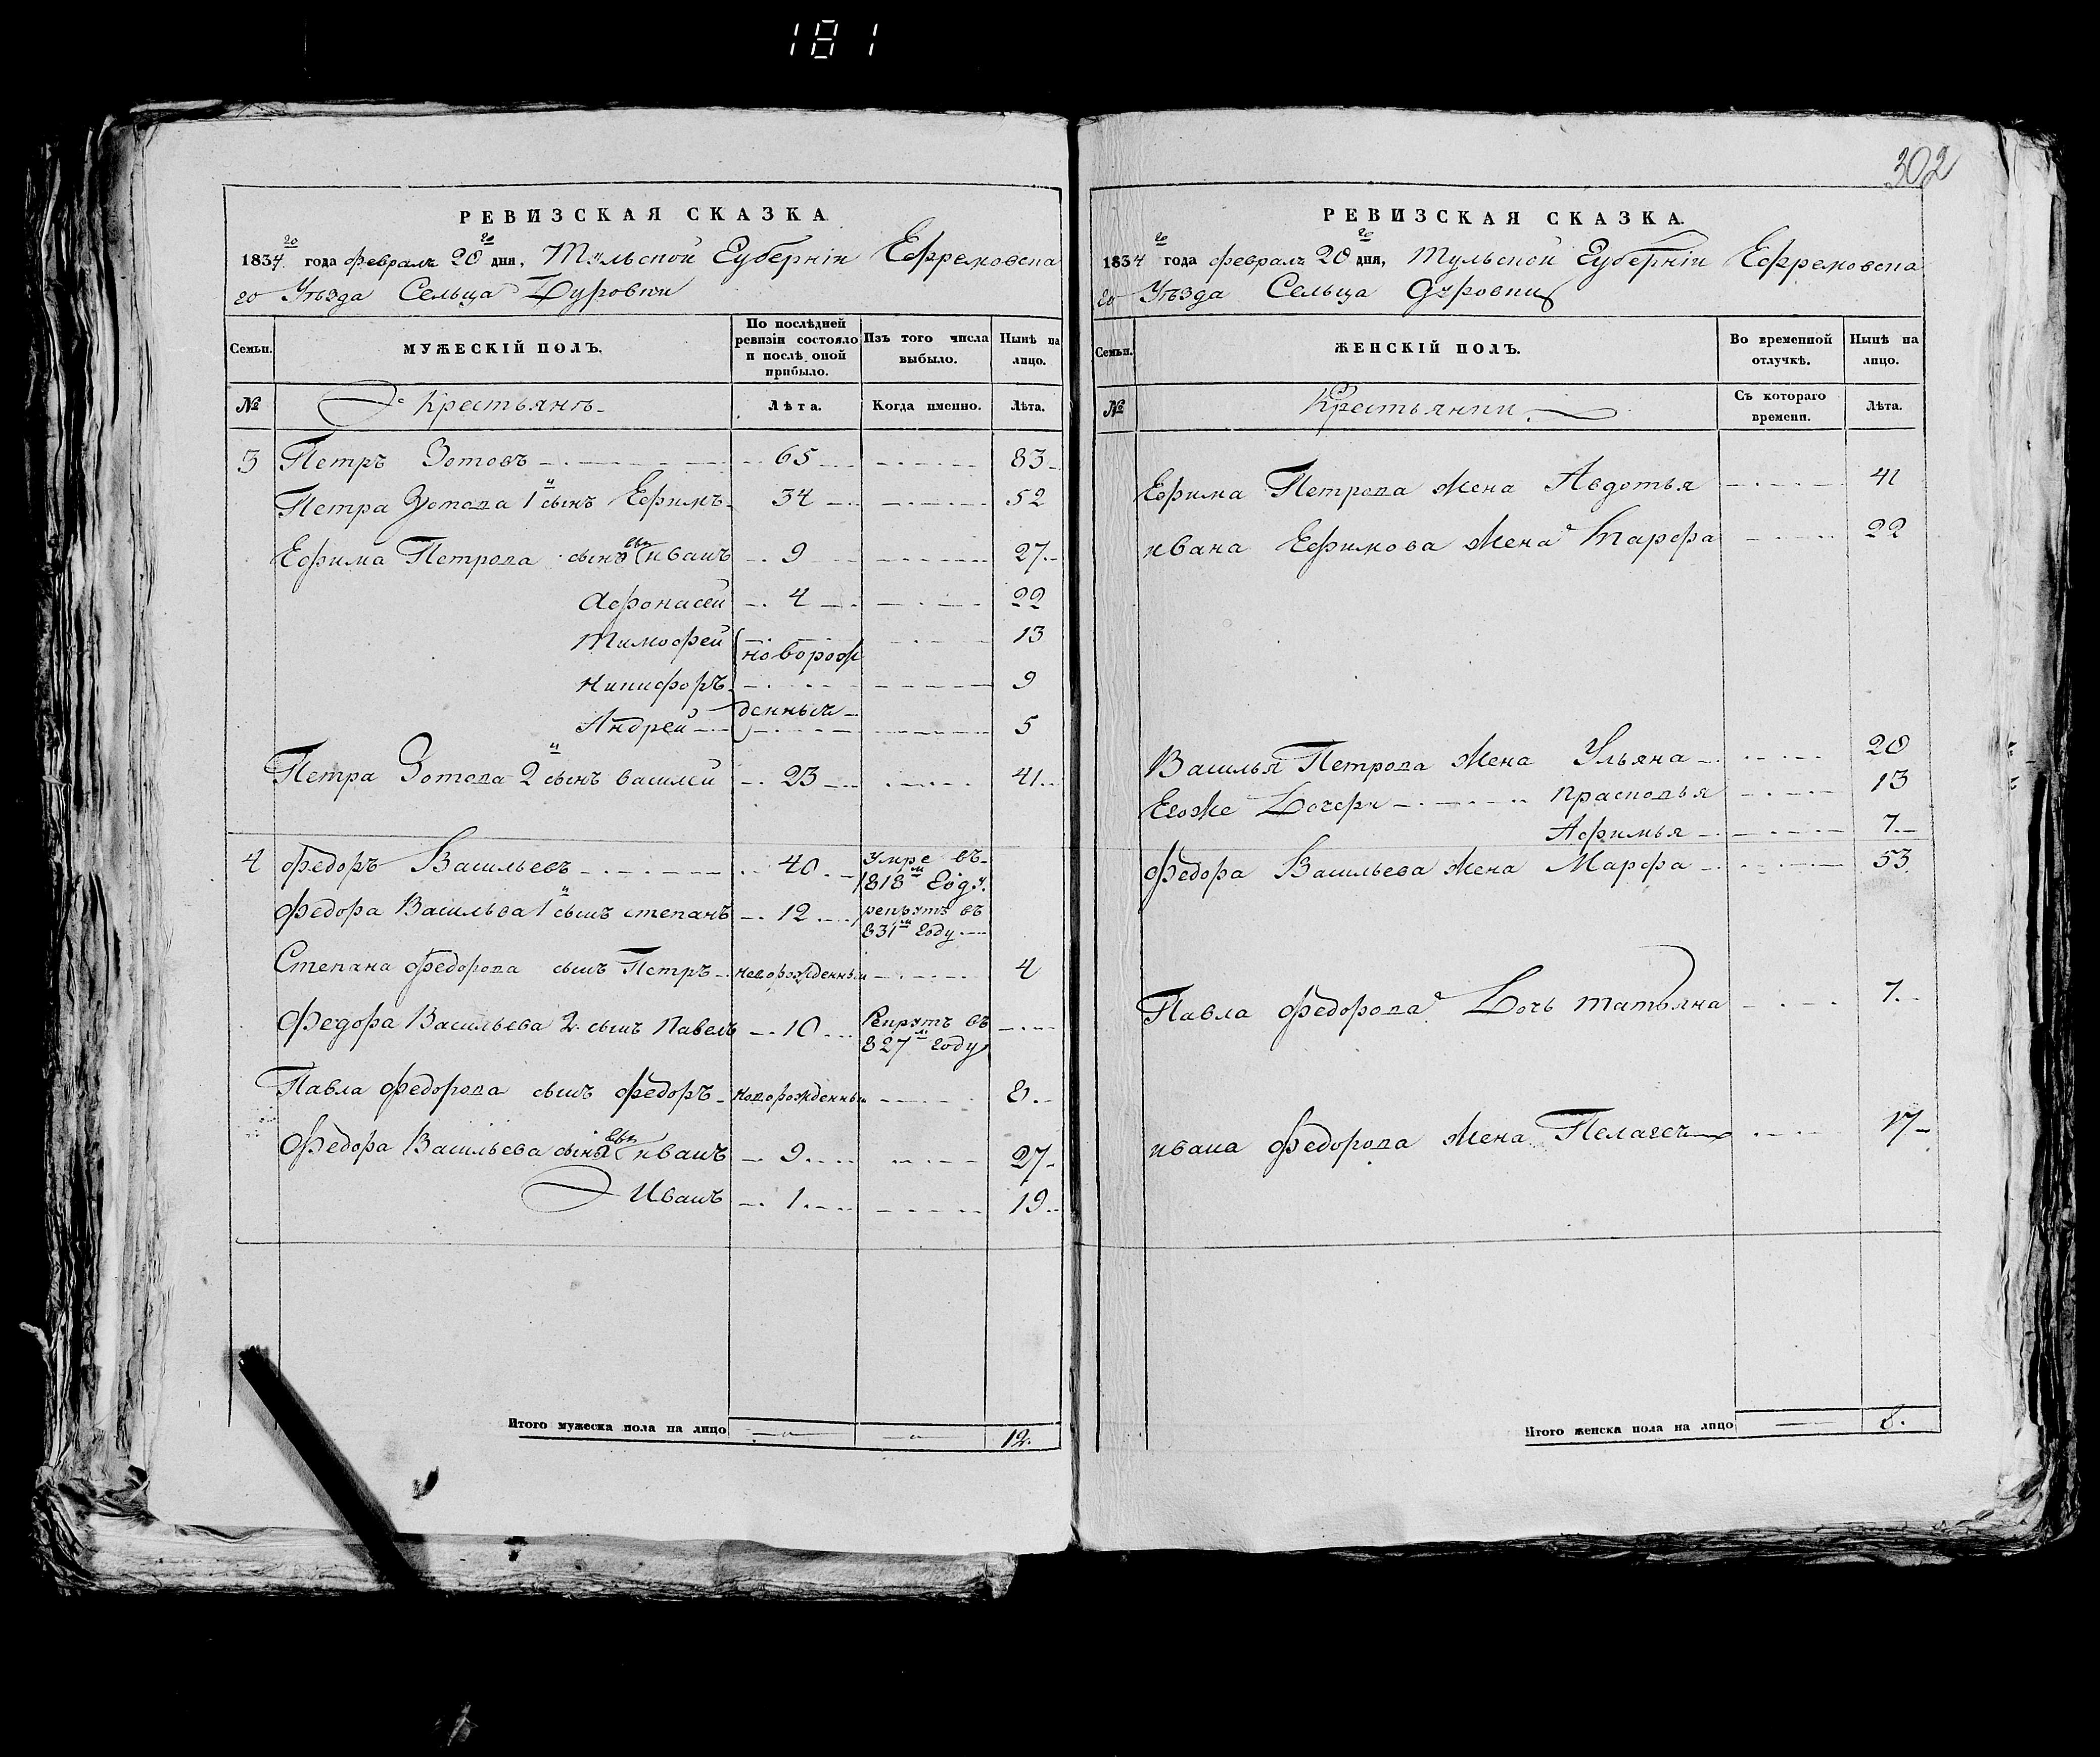 181
302
РЕВИЗСКАЯ СКАЗКА
1834го года февраля 20го дня, Тульской Губерніи Ефремовска
го Уѣзда Сельца Дуровки
Семьи.
МУЖЕСКІЙ ПОЛЪ.
По послѣдней ревизіи состояло и послѣ оной прибыло.
Изъ того числа выбыло.
Нынѣ на лицо.
№
Крестьянъ
Лѣта.
Когда именно.
Лѣта.
3 Петръ Зотовъ 65 83
Петра Зотова 1й сынъ Ефимъ 34 52
Ефима Петрова сыновьи Иванъ 9 27
Афонасей 4 22
Тимофей новорож 13
Никифоръ 9
Андрей денныя 5
Петра Зотова 2й сынъ василей 23 41
4 Федоръ Васильевъ 40 Умре въ 1818м Году.
Федора Васильева 1й сынъ степанъ 12 рекрутъ въ 831м Году
Степана Федорова сынъ Петръ новорожденный 4
Федора Васильева 2. сынъ Павелъ 10 Рекрутъ въ 827м Году
Павла Федорова сынъ Федоръ новорожденный 8
Федора Васильева сыновьи Иванъ 9 27
Иванъ 1 19
Итого мужеска пола на лицо 12.
РЕВИЗСКАЯ СКАЗКА.
1834го года февраля 20го дня, Тульской Губерніи Ефремовска
го Уѣзда Сельца Дуровки
Семьи.
ЖЕНСКІЙ ПОЛЪ.
Во временной отлучкѣ.
Нынѣ на лицо.
№
Крестьянки
Съ котораго времени.
Лѣта.
Ефима Петрова Жена Авдотья 41
Ивана Ефимова Жена Марфа 22
Василья Петрова Жена Ульяна 20
Егоже Дочери Прасковья 13
Афимья 7
Федора Васильева Жена Марфа 53
Павла Федорова Дочь Татьяна 7
Ивана Федорова Жена Пелагея 17
Итого женска пола на лицо 8.